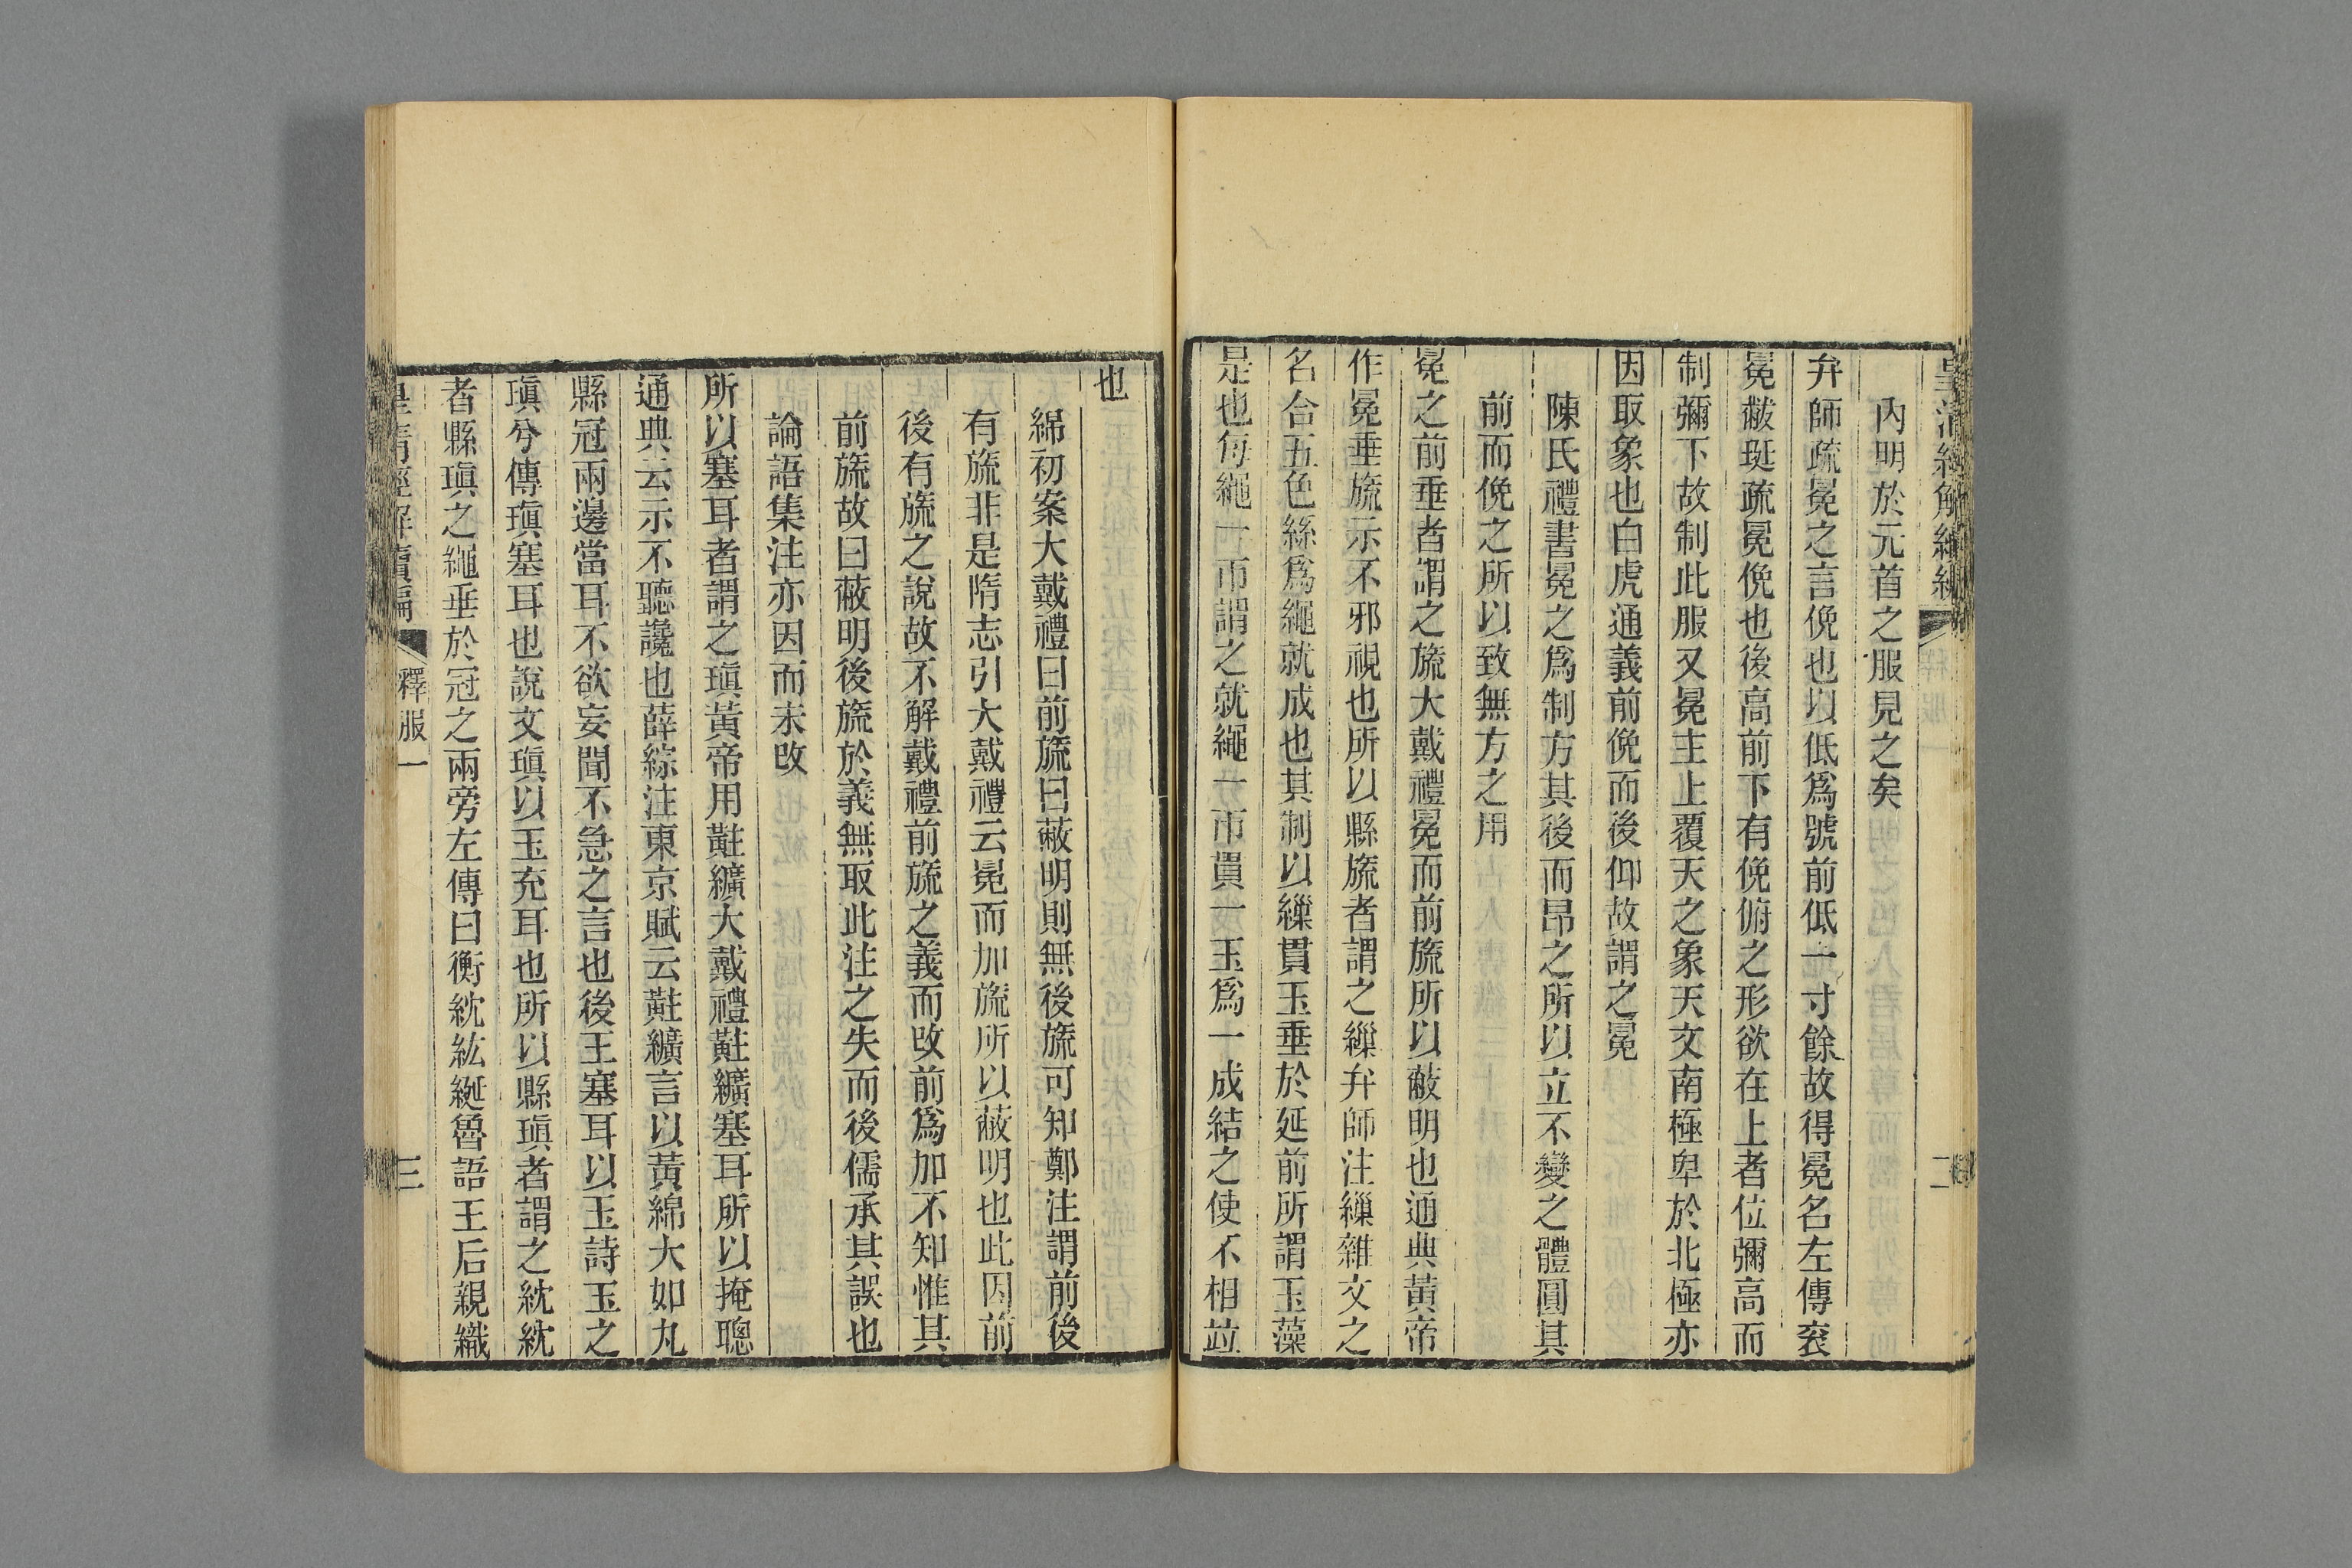 皇清經解續編
二
內明於元首之服見之矣
弁師疏冕之言俛也以低爲號前低一寸餘故得冕名左傳袞
冕黻珽疏冕俛也後高前下有俛俯之形欲在上者位彌高而
制彌下故制此服又冕主上覆天之象天文南極卑於北極亦
因取象也白虎通義前俛而後仰故謂之冕
陳氏禮書冕之爲制方其後而昂之所以立不變之體圓其
前而俛之所以致無方之用
冕之前垂者謂之旒大戴禮冕而前旒所以蔽明也通典黃帝
作冕垂旒示不邪視也所以縣旒者謂之繅弁師注繅雜文之
名合五色絲爲繩就成也其制以繅貫玉垂於延前所謂玉藻
是也每繩一帀謂之就繩一帀貫一玉爲一成結之使不相竝
也
綿初案大戴禮曰前旒曰蔽明則無後旒可知鄭注謂前後
有旒非是隋志引大戴禮云冕而加旒所以蔽明也此因前
後有旒之說故不解戴禮前旒之義而改前爲加不知惟其
前旒故曰蔽明後旒於義無取此注之失而後儒承其誤也
論語集注亦因而未改
所以塞耳者謂之瑱黃帝用黈纊大戴禮黈纊塞耳所以掩聰
通典云示不聽讒也薛綜注東京賦云黈纊言以黃綿大如丸
縣冠兩邊當耳不欲妄聞不急之言也後王塞耳以玉詩玉之
瑱兮傳瑱塞耳也說文瑱以玉充耳也所以縣瑱者謂之紞紞
者縣瑱之繩垂於冠之兩旁左傳曰衡紞紘綖魯語王后親織
皇清經解續編
釋服一
三